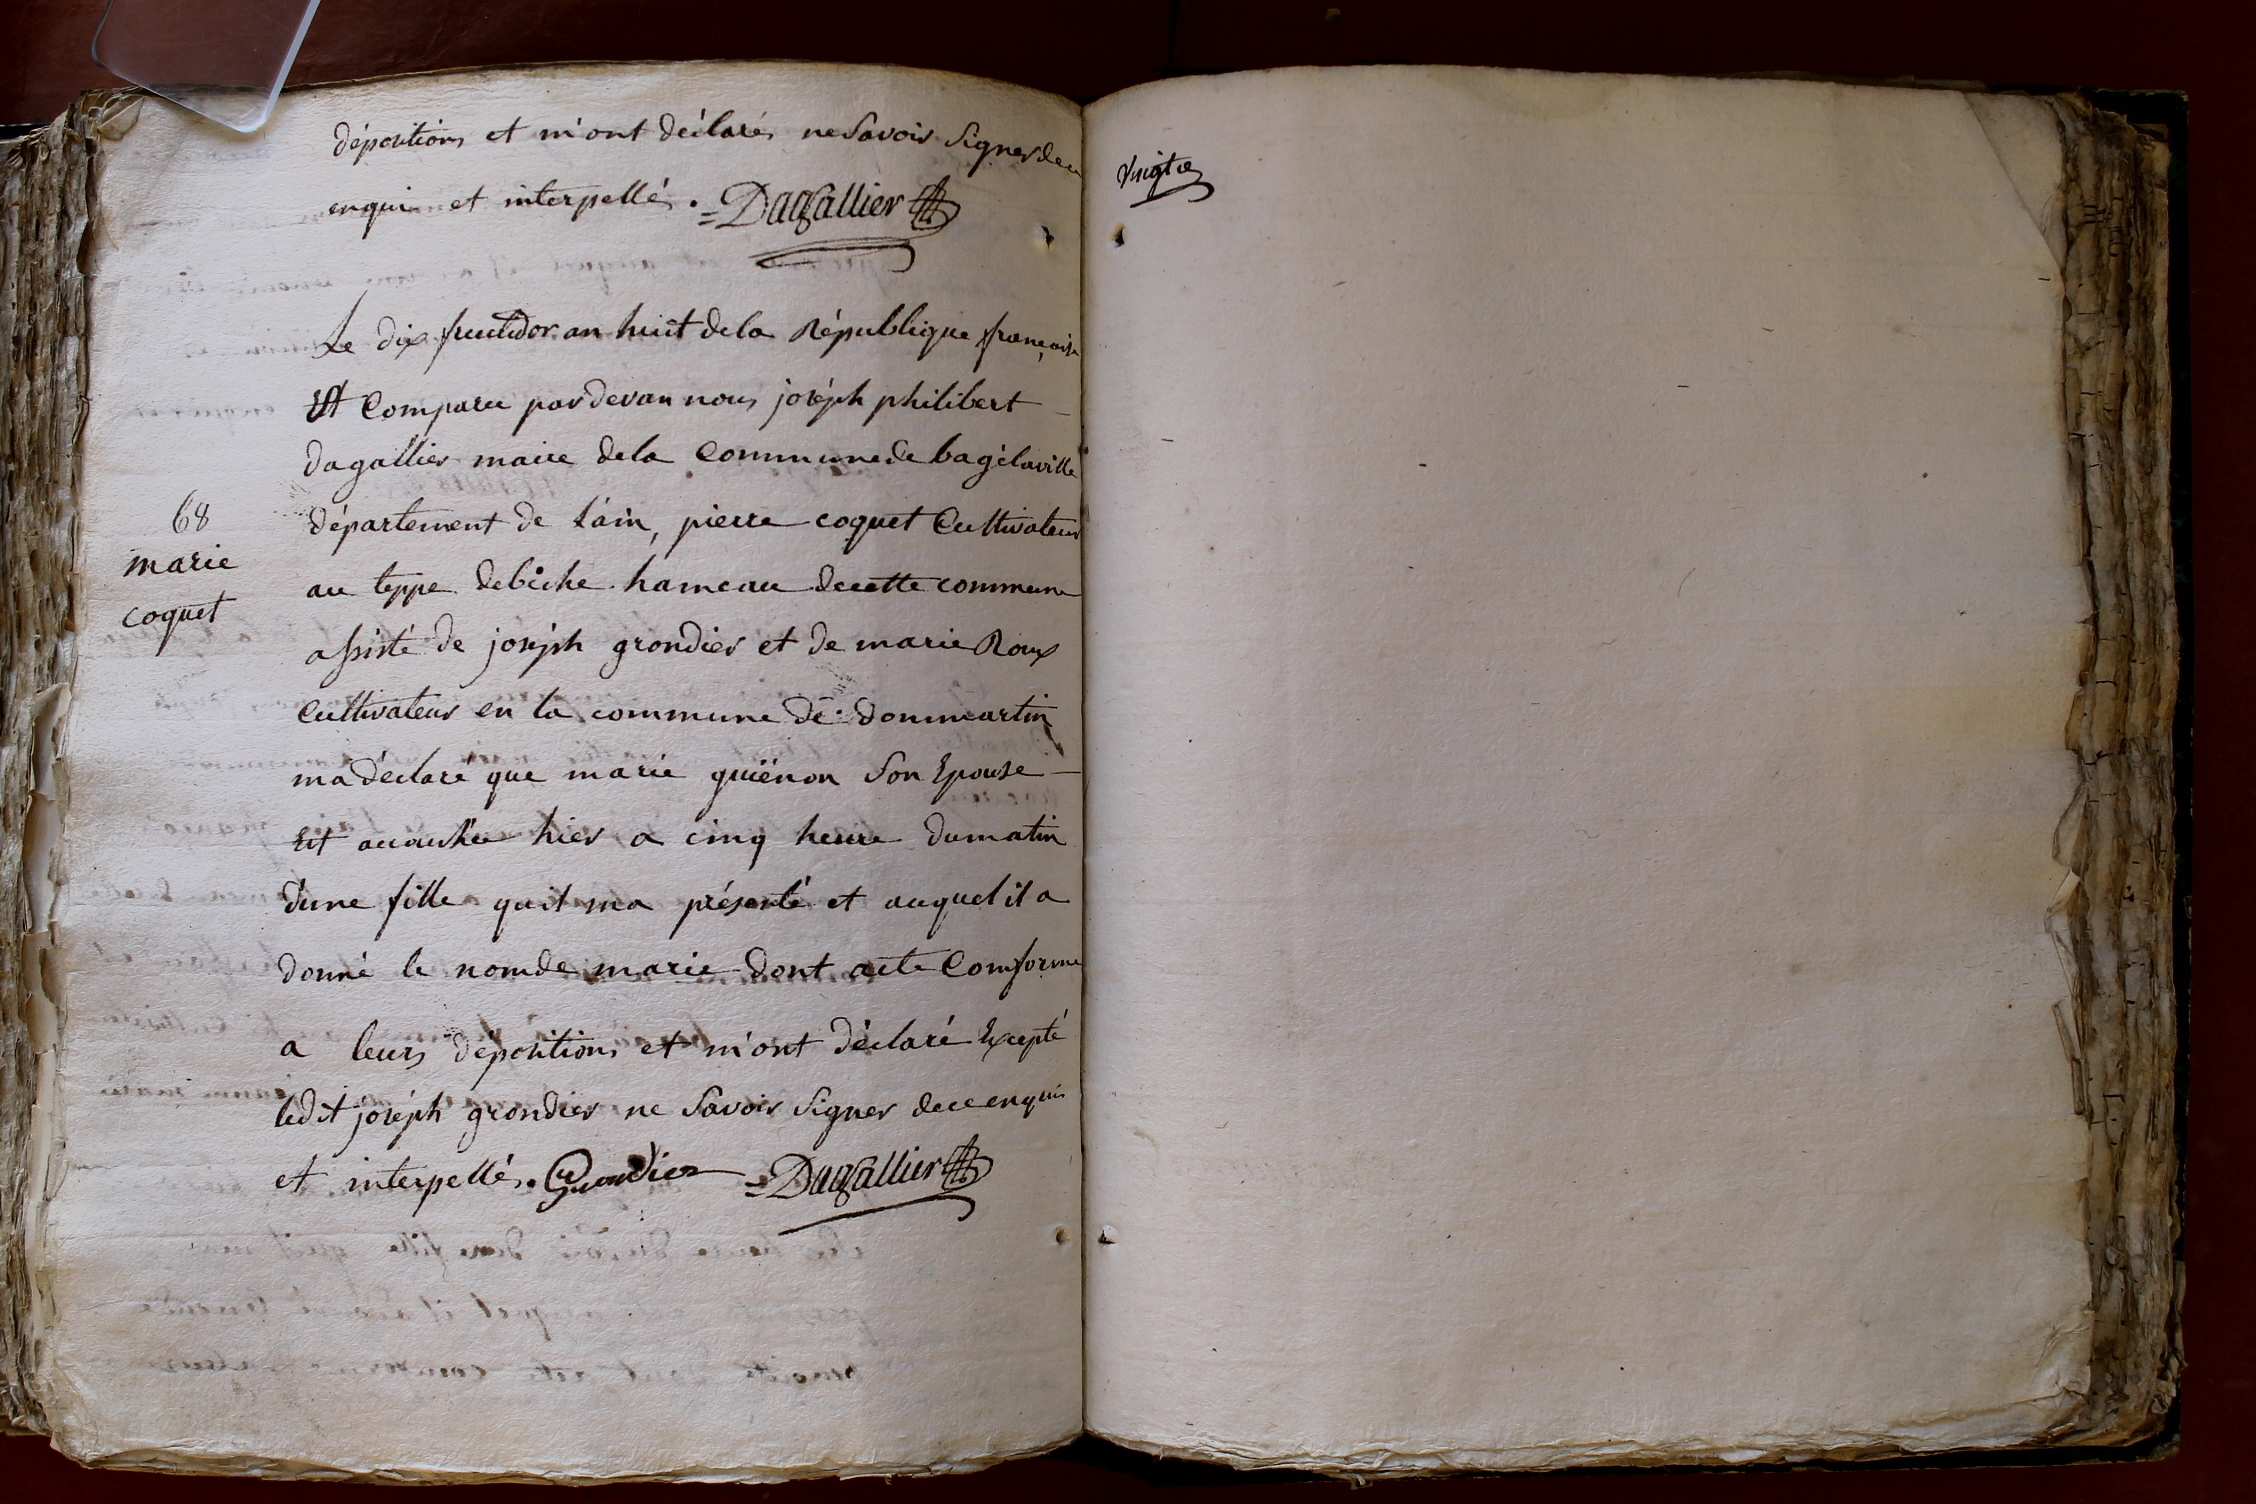 dépositions et m'ont déclarés ne savoir signer de ce
enquis et interpellé. = Dagallier
Le dix fructidor an huit de la République françoise
Est comparu pardevan nous joséph philibert
dagallier maire de la commune de bagélaville
département de l'ain, pierre coquet Cultivateur
68
marie
coquet
au teppe debiche hameau de cette commune
assisté de joséph grondier et de marie Roux
Cultivateur en la commune de donmartin
ma déclaré que marie guiënon son Epouse
Est accouchée hier a cinq heure du matin
d'une fille quil ma présenté et auquel il a
donné le nom de marie dont acte Comforme
a leurs dépositions et m'ont déclaré Excepté
ledit joséph grondier ne savoir signer de ce enquis
et interpellés. Grondier = Dagallier